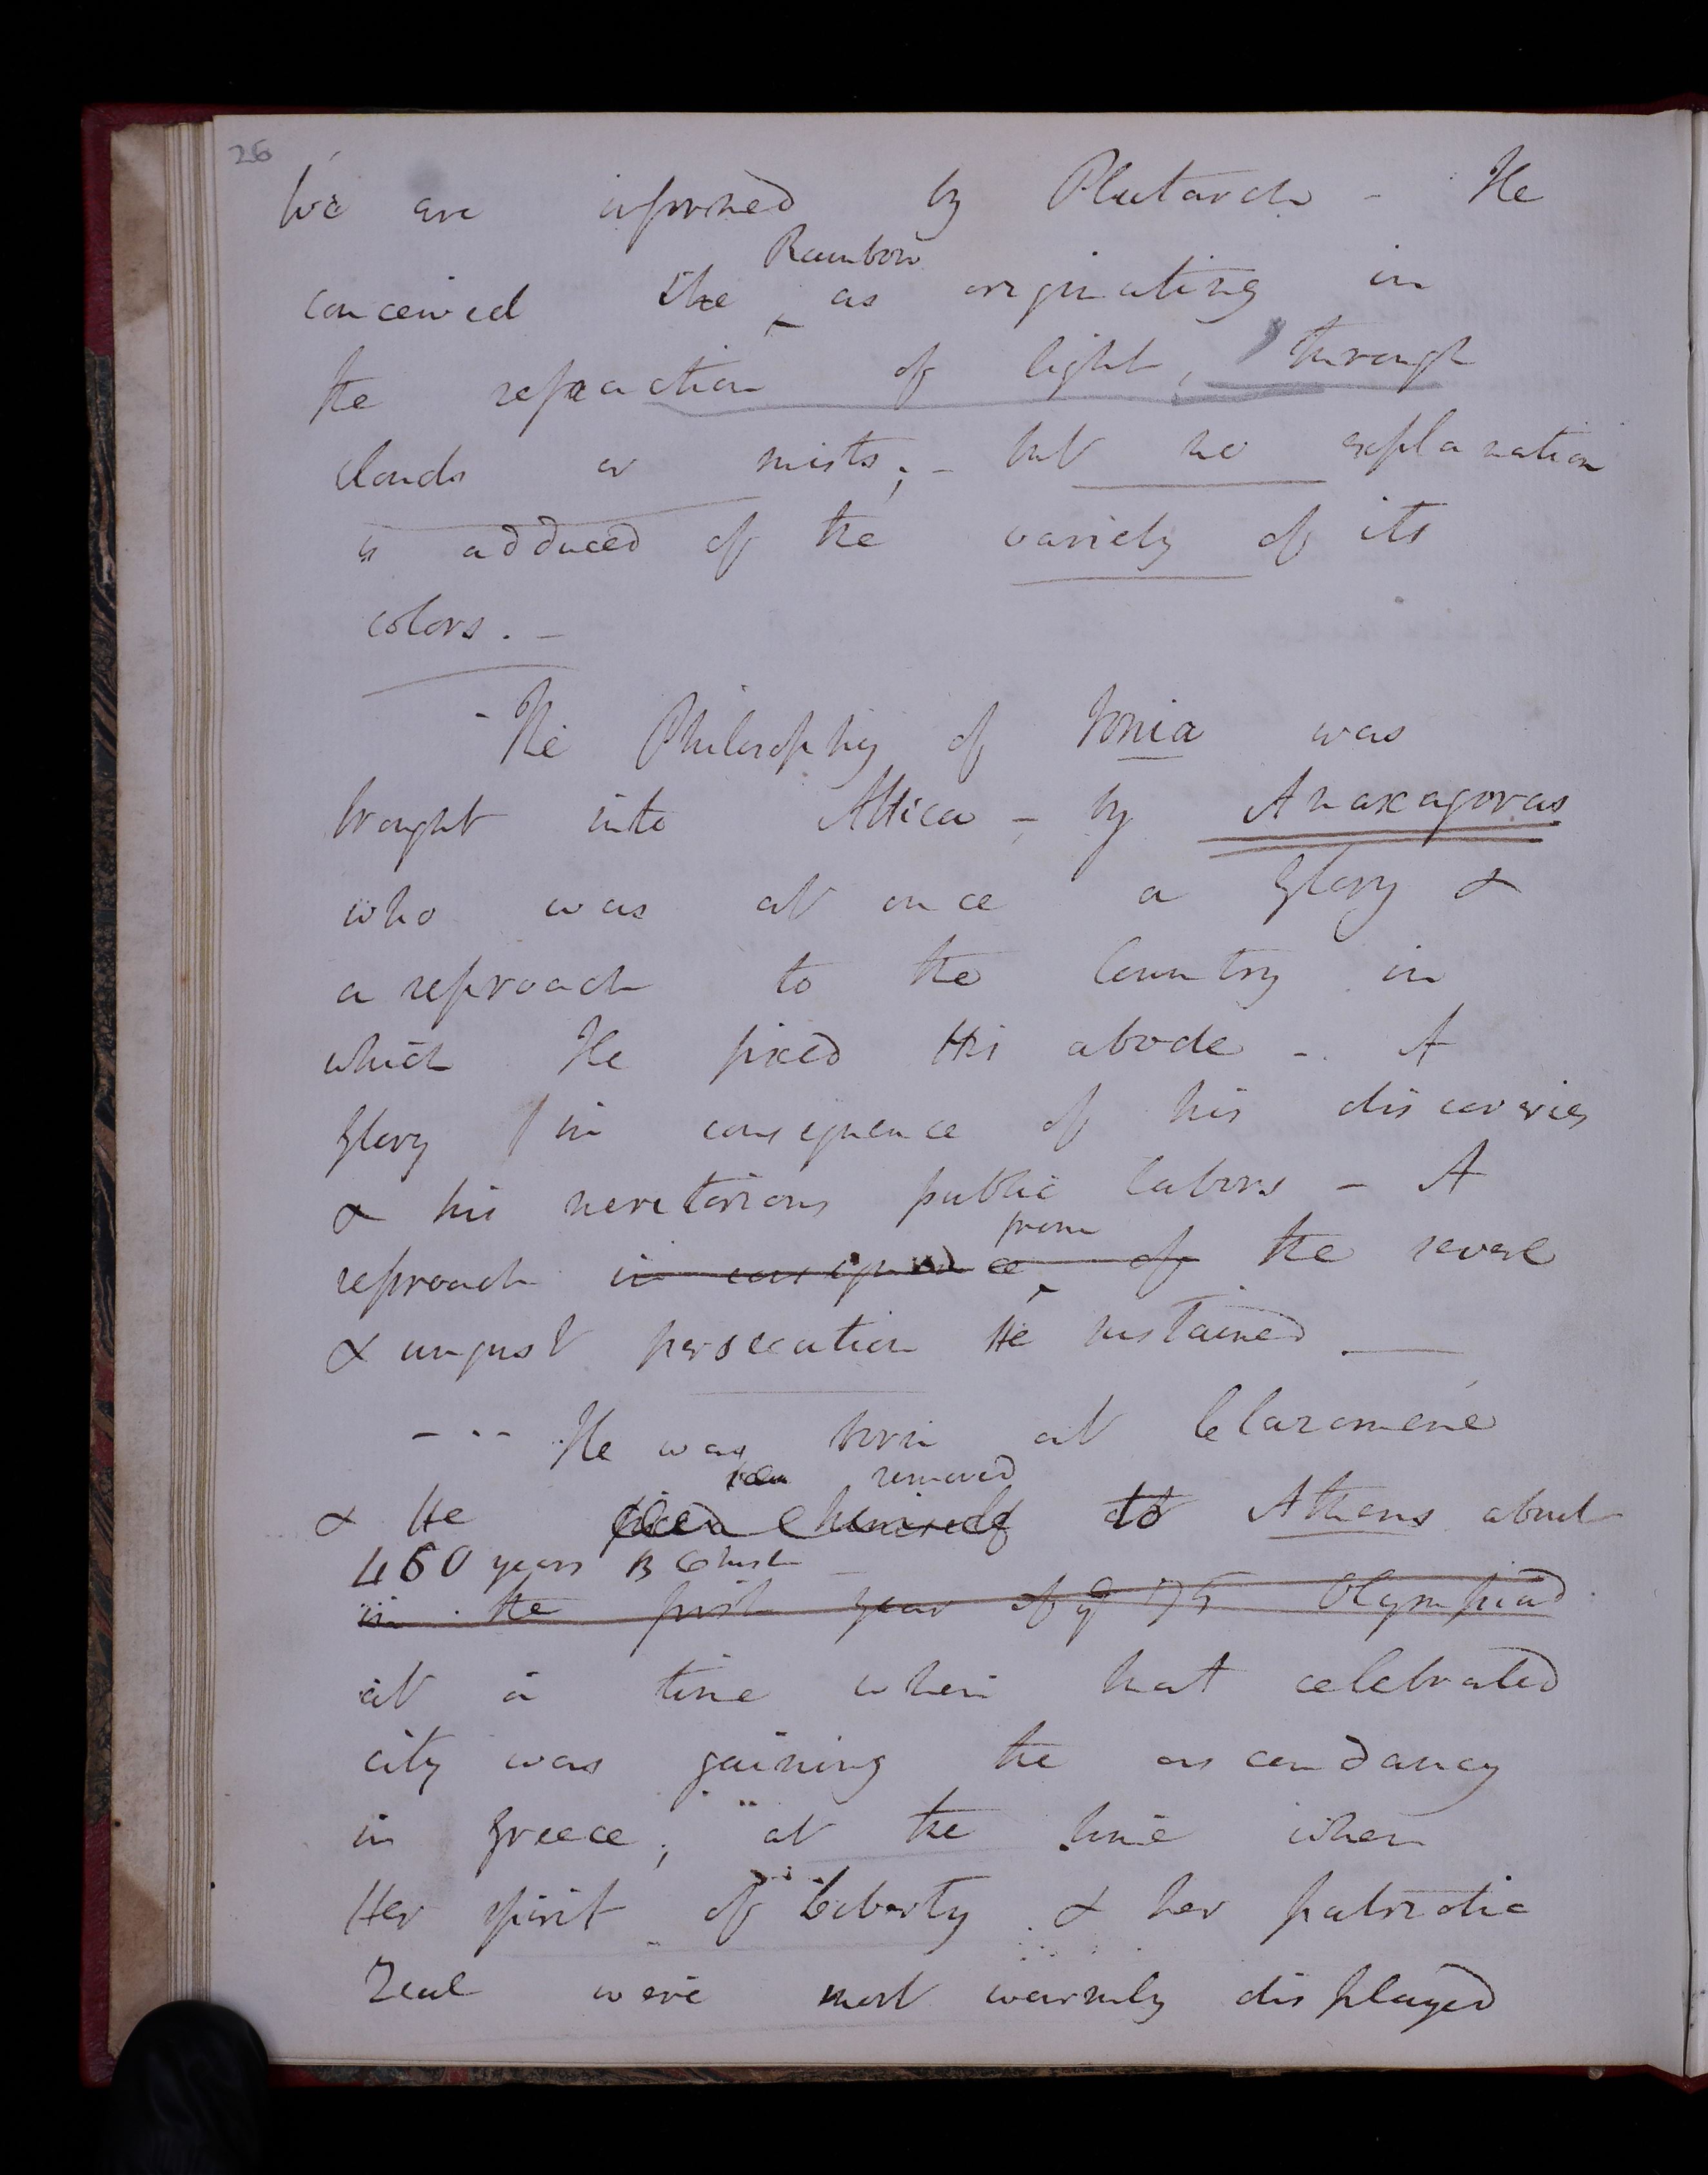 26
We are informed by Plutarch - He
Rainbow
conceived the ^ as originating in
the refraction of light, through
clouds or mists; - but no explanation
is adduced of the variety of its
colors. -
- The Philosophy of Ionia was
brought into Attica - by Anaxagoras
who was at once a glory &
a reproach to the Country in
which He fixed His abode -. A
glory / in consequence of his discoveries
& his meritorious public labors - A
from
reproach in consequence ^ of the severe
& unjust persecution He sustained. —
- - - He was born at Clazomene
removed
& He fixed himself to Athens about
460 years B Christ
in the first year of ye 75 Olympiad
at a time when that celebrated
city was gaining the ascendancy
in Greece; at the time when
Her spirit of Liberty & her patriotic
Zeal were most warmly displayed